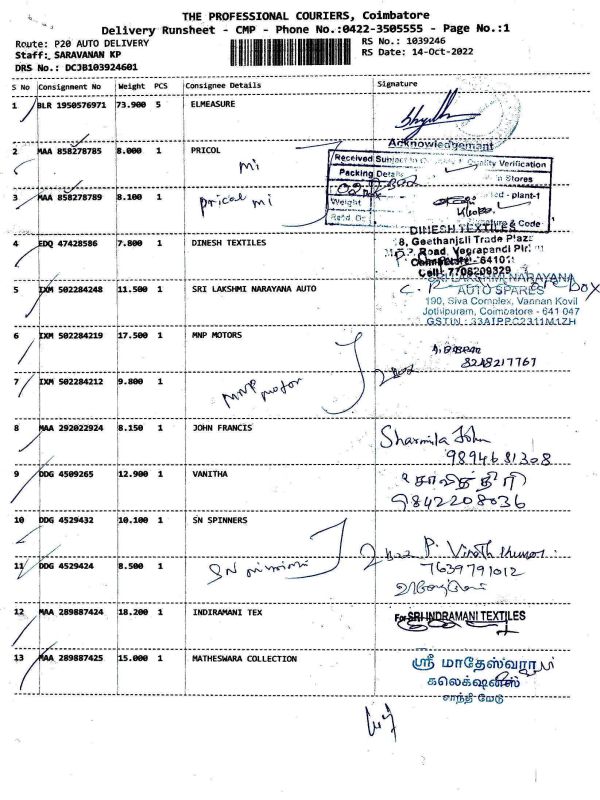 THE PROFESSIONAL COURIERS, Coimbatore
Delivery Runsheet - CMP - Phone No.:0422-3505555 - Page No.:1
Route: P20 AUTO DELIVERY
RS No.: 1039246
Staff: SARAVANAN KP
RS Date: 14-Oct-2022
DRS No.: DCJB103924601
S No Consignment No Weight PCS Consignee Details Signature
1 BLR 1950576971 73.900 5 ELMEASURE
Acknowledgemant
2 MAA 858278785 8.000 1 PRICOL
mi
Received Subject to Quality Verification
Packing Details Stores
3 MAA 858278789 8.100 1
pricol mi
Weight - plant-1
Signature & Code
DINESH TEXTILES
4 EDQ 47428586 7.800 1 DINESH TEXTILES
8, Geethanjali Trade Plaza
Road, Veerapandi
Coimbatore - 641019
Cell: 7708209329
5 IXM 502284248 11.500 1 SRI LAKSHMI NARAYANA AUTO
SRI LAKSHMI NARAYANA
Box
AUTO SPARES
190, Siva Complex, Vannan Kovil
Jothipuram, Coimbatore - 641 047
GSTIN : 33AIPPC2311M1ZH
6 IXM 502284219 17.500 1 MNP MOTORS
8248217767
7 IXM 502284212 9.800 1
MNP motor
2 Box
8 MAA 292022924 8.150 1 JOHN FRANCIS
Sharmila John
9894681308
9 DDG 4509265 12.900 1 VANITHA
9842208036
10 DDG 4529432 10.100 1 SN SPINNERS
2 Box P. Vinoth Kumar
11 DDG 4529424 8.500 1
SN
7639791012
12 MAA 289887424 18.200 1 INDIRAMANI TEX
For SRI INDRAMANI TEXTILES
13 MAA 289887425 15.000 1 MATHESWARA COLLECTION
ஸ்ரீ மாதேஸ்வரா
கலெக்ஷன்ஸ்
சாந்தி மேடு